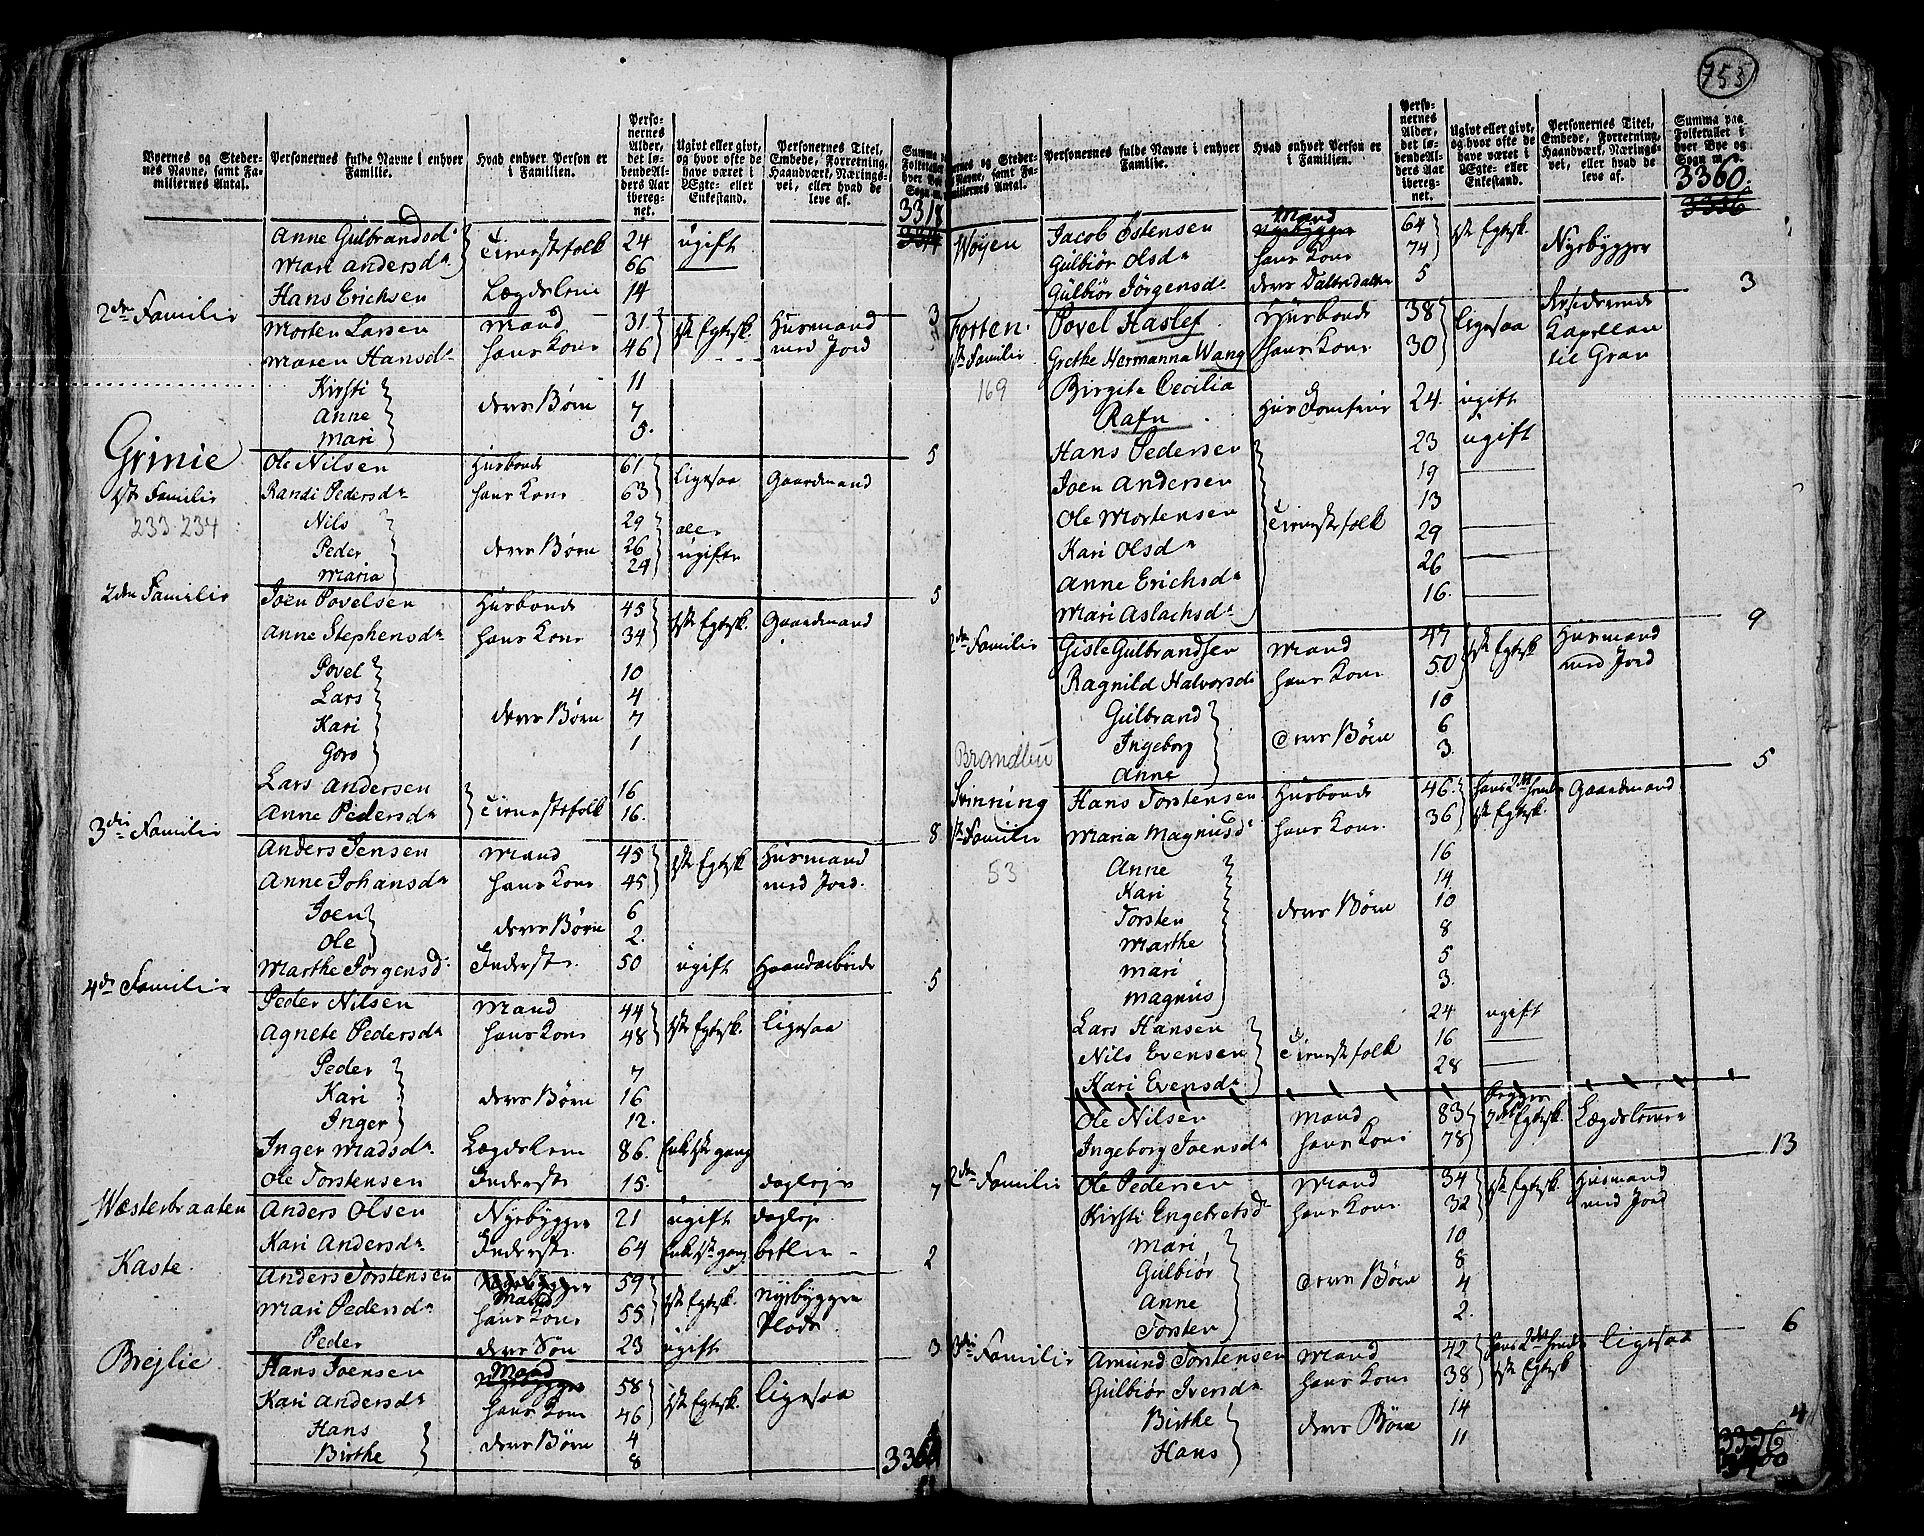 755
Byernes og Steder-
nes Navne, samt Fa-
miliernes Antal.
Personernes fulde Navne i enhver
Familie.
Hvad enhver Person er
i Familien.
Perso-
nernes
Alder,
det lø-
bende Al-
ders Aar
ibereg-
net.
Ugivt eller givt,
og hvor ofte de
have været i
Ægte- eller
Enkestand.
Personernes Titel,
Embede, Forretning,
Haandværk, Nærings-
vei, eller hvad de
leve af.
3318
Anne Gulbrandsd. Tienestefolk 24 ugift
Mari Andersdr 66
Hans Erichsen Lægdslem 14
3
2den Familie Morten Larsen Mand 31 1ste Egtesk. Huusmand
Maren Hansdr hans Kone 46 med Jord
Kirsti 11
Anne deres Børn 7
Mari 5.
5
Grinie Ole Nilsen Husbonde 61 ligesaa Gaardmand
1ste Familie Randi Pedersdr hans Kone 63
233-234 Nils 29 alle
Peder deres Børn 26 ugifte
Maria 24
5
2den Familie Joen Povelsen Husbonde 45 1ste Egtesk. Gaardmand
Anne Stephensdr hans Kone 34
Povel 10
Lars 4
Kari deres Børn 7
Goro 1
Lars Andersen Tienestefolk 16
Anne Pedersdr 16.
8
3die Familie Anders Jensen Mand 45 1ste Egtesk. Huusmand
Anne Johansdr hans Kone 45 med Jord.
Joen deres Børn 6
Ole 2.
Marthe Jørgensd. Inderste 50 ugift Haandarbeide
5
4de Familie Peder Nilsen Mand 44 1ste Egtesk. ligesaa
Agnete Pedersdr hans Kone 48
Peder 7
Kari deres Børn 16
Inger 12.
Inger Madsdr Lægdslem 86. Enke 1ste gang
Ole Torstensen Inderste 15. dagleje
7
Wæsterbraaten Anders Olsen Nyebygger 21 ugift dagleje
Kari Andersdr Inderste 64 Enke 1ste gang betler
2
Kaste. Anders Torstensen Mand 59 1ste Egtesk. Nyebygger
Mari Pedersdr hans Kone 55 Plads
Peder deres Søn 23 ugift
3
Brejlie Hans Joensen Mand 58 1ste Egtesk. ligesaa
Kari Andersdr hans Kone 46
Hans deres Børn 4
Birthe 8
4
3360
Personernes fulde Navne i enhver
Familie.
Hvad enhver Person er
i Familien.
Perso-
nernes
Alder,
det lø-
bende Al-
ders Aar
ibereg-
net.
Ugivt eller givt,
og hvor ofte de
have været i
Ægte- eller
Enkestand.
Personernes Titel,
Embede, Forretning,
Haandværk, Nærings-
vei, eller hvad de
leve af.
Summa paa
Folketallet i
hver Bye og
Sogn m. v.
3360.
3336
Wøyen Jacob Østensen Mand 64 1ste Egtesk. Nyebygger
Gulbiør Olsdr hans Kone 74
Gulbiør Jørgensdr deres Datterdatter 5
3
Forten. Povel Haslef Husbonde 38 ligesaa Residerende
1ste Familie Grethe Hermanna Wang hans Kone 30 Kapellan
169 til Gran
Birgite Cecilia
Rafn Huus Jomfrue 24. ugift
Hans Pedersen 23 ugift
Joen Andersen 19
Ole Mortensen 13
Kari Olsdr Tienestefolk 29
Anne Erichsdr 26
Mari Aslachsdr 16.
9
2den Familie Gisle Gulbrandsen Mand 47 1ste Egtesk Huusmand
Ragnild Halvorsd. hans Kone 50 med Jord
Gulbrand 10
Ingeborg deres Børn 6
Anne 3.
5
Brandbu
Svinning Hans Torstensen Husbonde 46. hans 2det hendes Gaardmand
1ste Familie Maria Magnusd. hans Kone. 36 1ste Egtesk.
53 Anne 16
Kari 14
Torsten deres Børn 10
Marthe 8
Mari 5
Magnus 3.
Lars Hansen 24 ugift
Nils Evensen Tienestefolk 16
Kari Evensdr 28
Ole Nilsen Mand 83 Begges 2det Egtesk. Lægdslemmer
Ingeborg Joensdr hans Kone 78
13
2den Familie Ole Pedersen Mand 34 1ste Egtesk. Huusmand
Kirsti Engebretsdr hans Kone 32 med Jord
Mari 10
Gulbiør deres Børn 8
Anne 4
Torsten 2.
6
3die Familie Amund Torstensen Mand 42 hans 2det hendes ligesaa
Gulbiør Iversdr hans Kone 38 1ste Egtesk
Birthe deres Børn 14
Hans 11
4
3396
3400